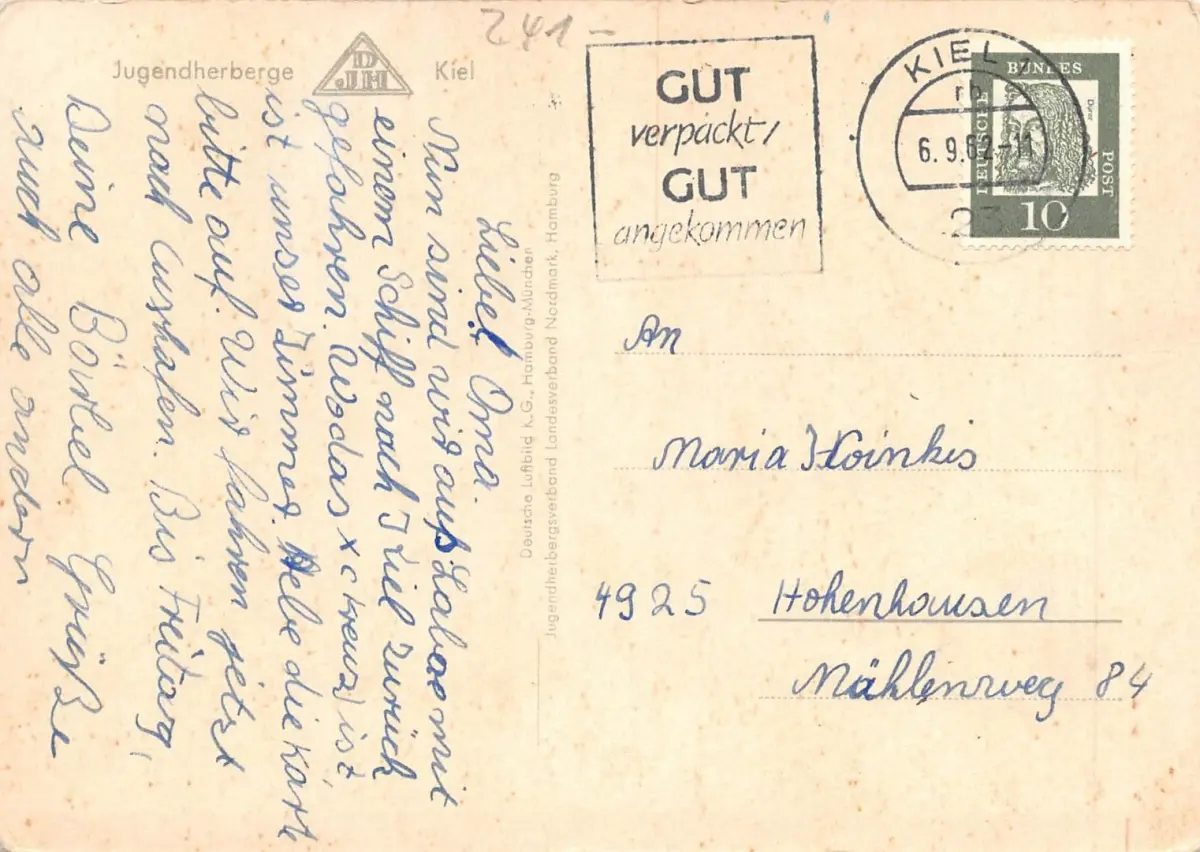 241-
Jugendherberge DJH Kiel
Liebe Oma.
Nun sind wir auß Laboe mit
einem Schiff nach Kiel zurück
gefahren. Wo das x (kreuz) ist
ist unser Zimmer. Hebe die Karte
bitte auf. Wir fahren jetzt
nach Cuxhafen. Bis Freitag,
Deine Bärbel Grüße
auch alle andern
Deutsche Luftbild K.G., Hamburg-München
Jugendherbergsverband Landesverband Nordmark, Hamburg
GUT
verpackt,
GUT
angekommen
KIEL
rb
6. 9. 62-11
23
DEUTSCHE BUNDES POST
Dürer
10
An
Maria Koinkis
4925 Hohenhausen
Mühlenweg 84